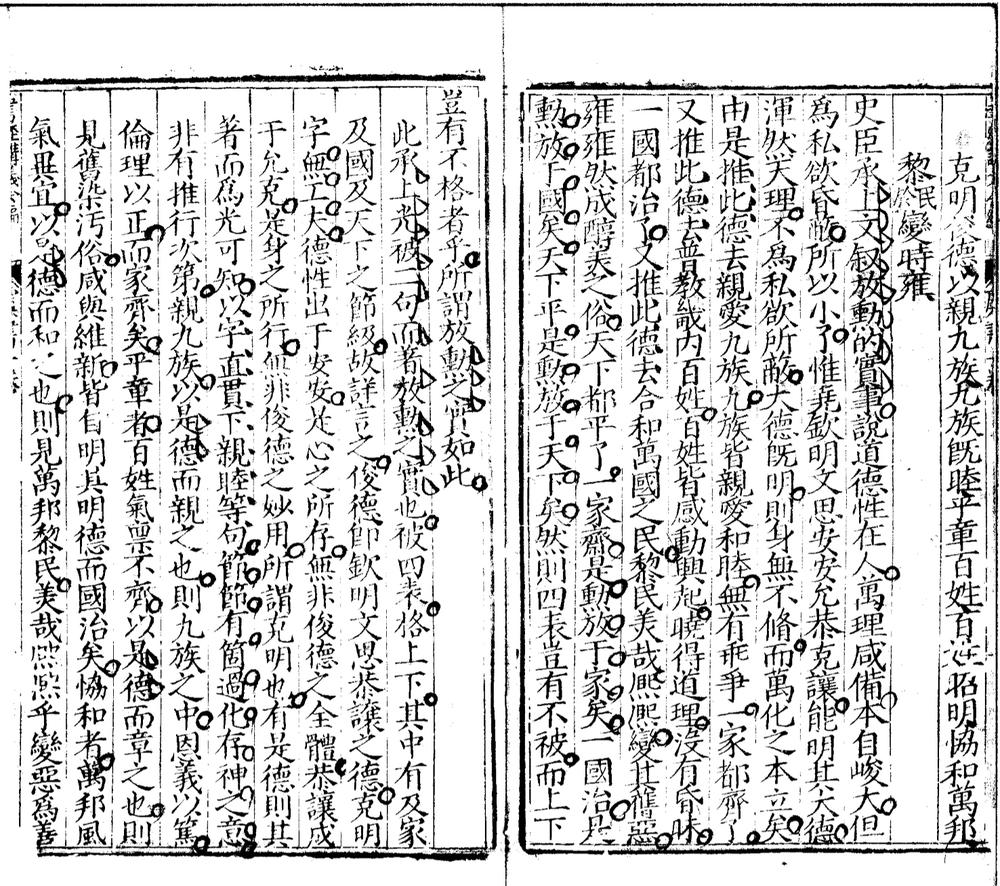 克明俊德以親九族九族既睦平章百姓百姓昭明協和萬邦
黎民於變時雍
史臣承上文叙放勳的實事說道德性在人萬理咸備本自峻大但
為私欲昏蔽所以小了惟堯欽明文思安安允恭克讓能明其大德
渾然天理不為私欲所蔽大德既明則身無不脩而萬化之本立矣
由是推此德去親愛九族九族皆親愛和睦無有乖爭一家都齊了
又推此德去普教畿內百姓百姓皆感動興起曉得道理沒有昏昧
一國都治了又推此德去合和萬國之民黎民美哉熈熈變其舊惡
雍雍然成醇美之俗天下都平了一家齊是勲放于家矣一國治是
勲放于國矣天下平是勲放于天下矣然則四表豈有不被而上下
豈有不格者乎所謂放勲之實如此
此承上光被二句而著放勲之實也被四表格上下其中有及家
及國及天下之節級故詳言之俊德即欽明文思恭讓之德克明
字無工夫德性出于安安是心之所存無非俊德之全體恭讓成
于允克是身之所行無非俊德之妙用所謂克明也有是德則其
著而為光可知以字直貫下親睦等句節節有箇過化存神之意
非有推行次第親九族以是德而親之也則九族之中恩義以篤
倫理以正而家齊矣平章者百姓氣禀不齊以是德而章之也則
見舊染汚俗咸與維新皆自明其明德而國治矣恊和者萬邦風
氣異宜以是德而和之也則見萬邦黎民美哉熈熈乎變惡為善